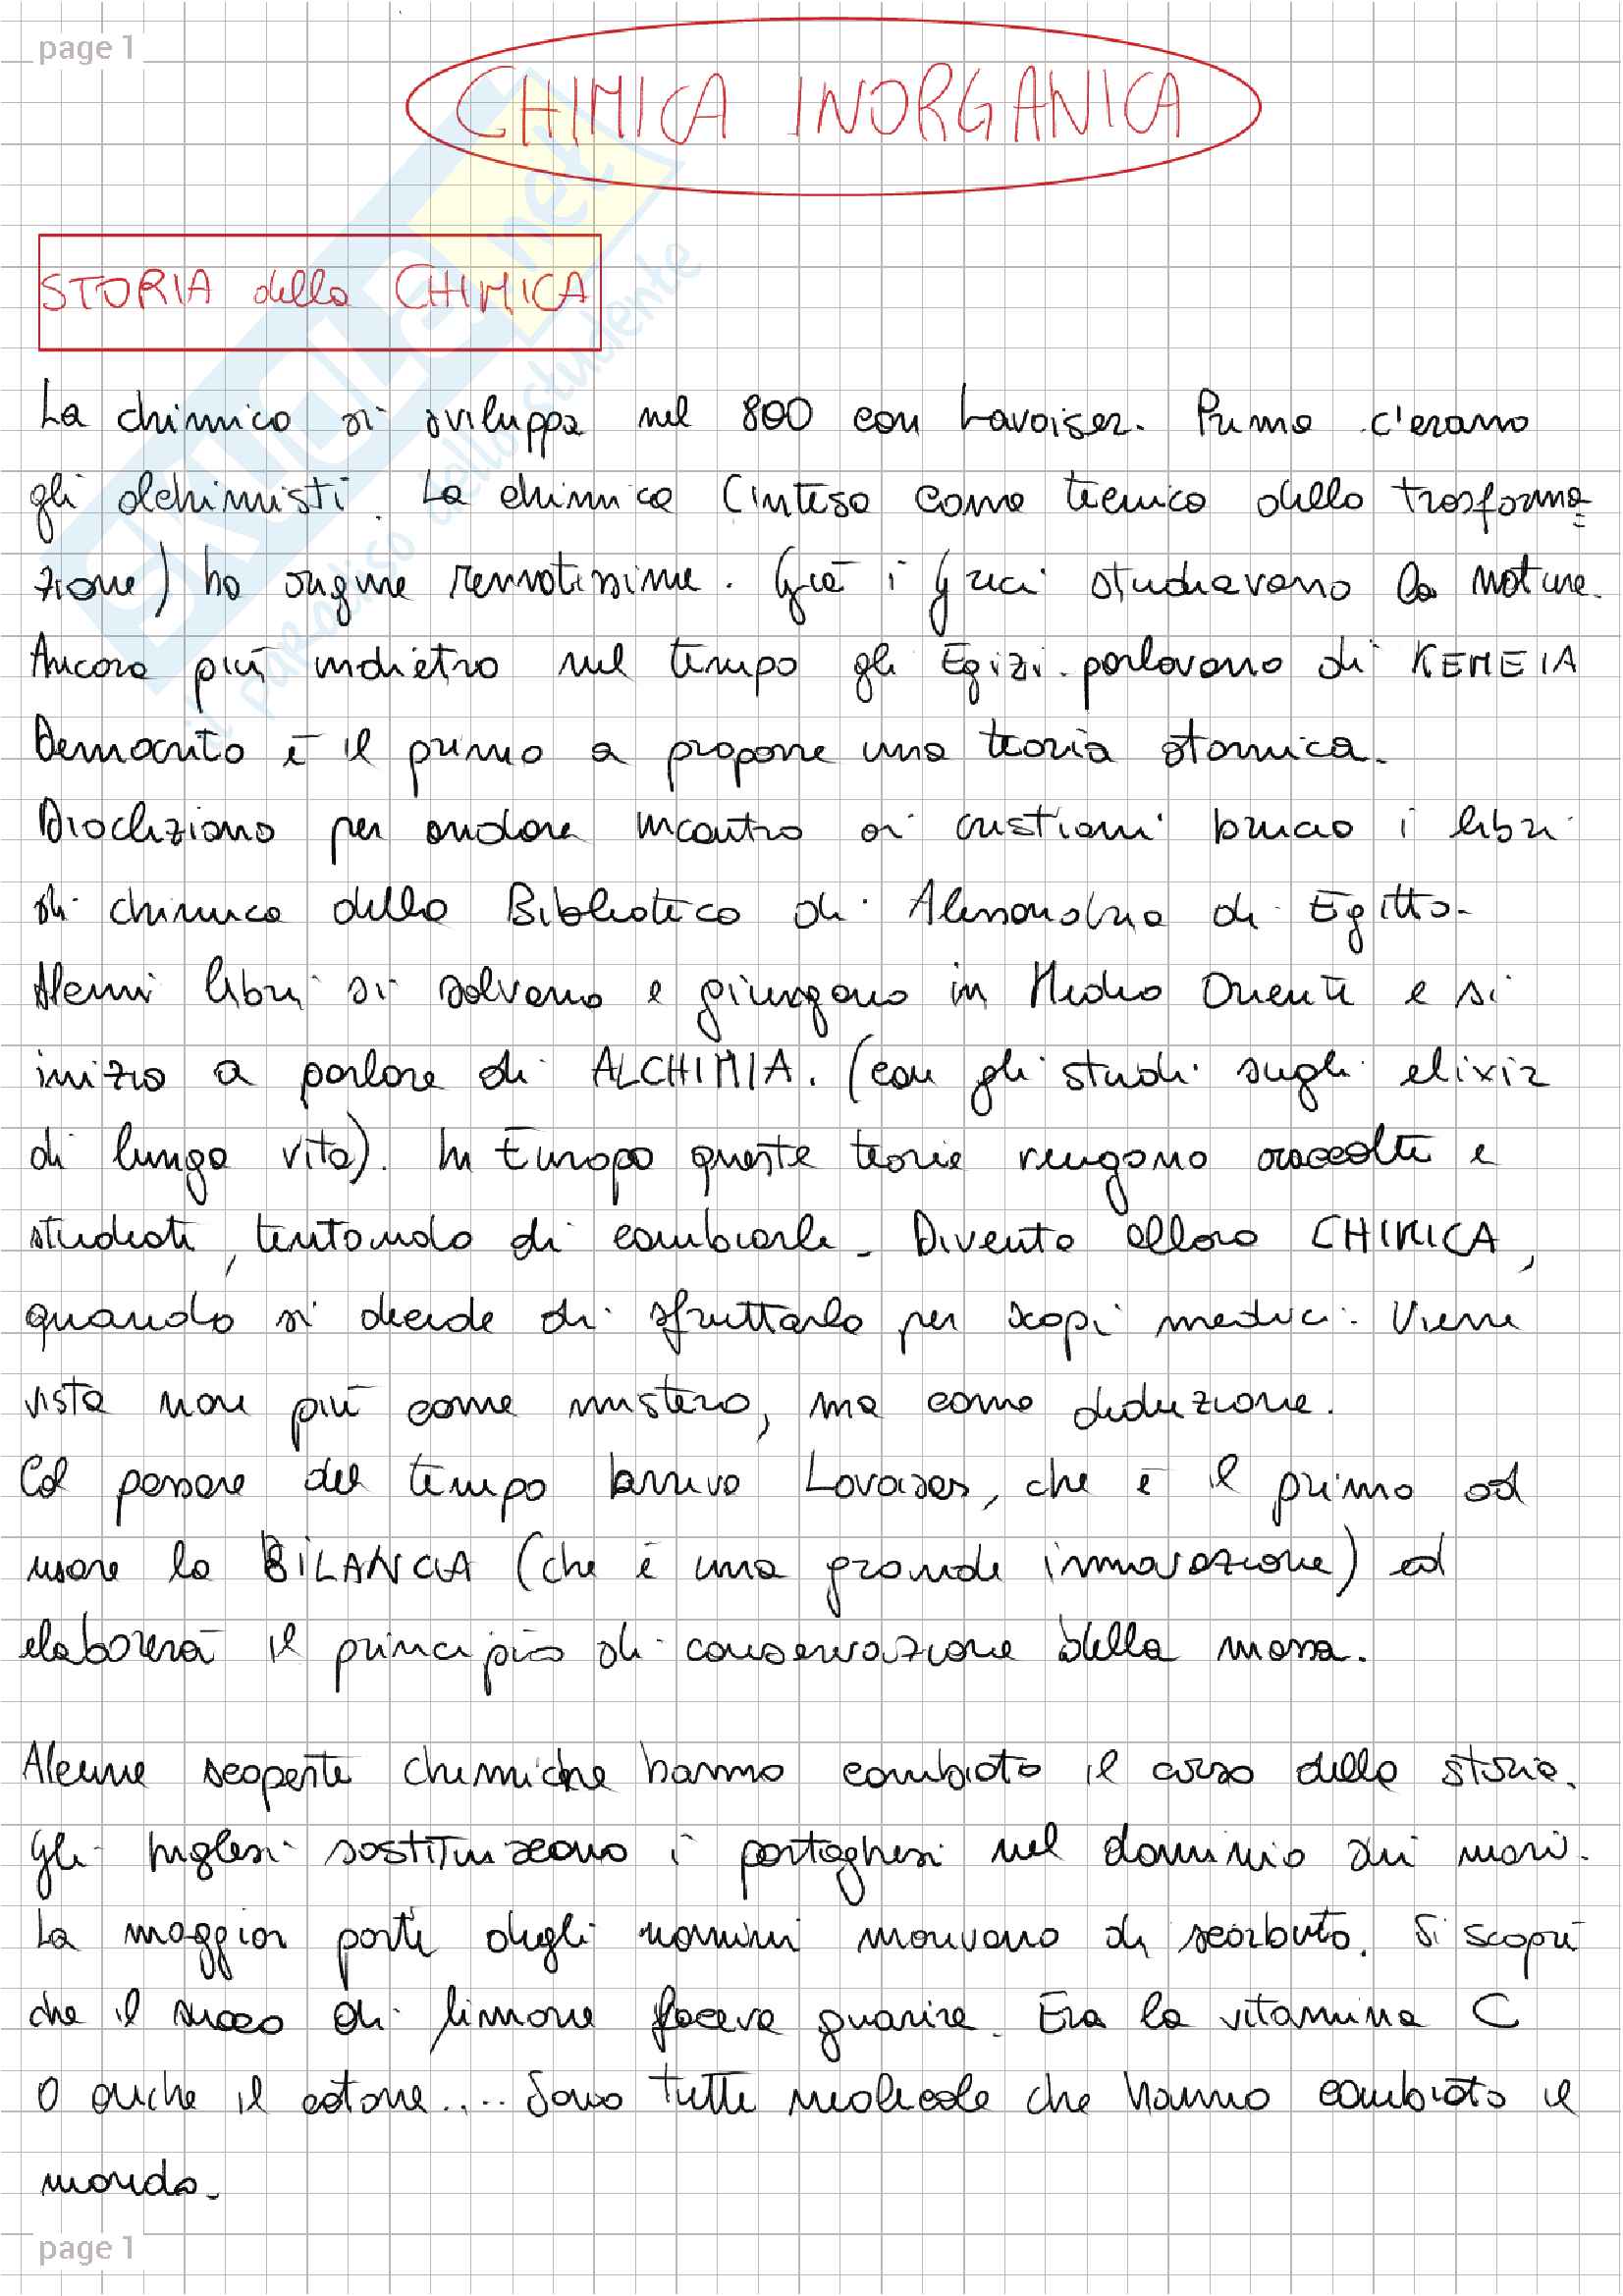 page 1
CHIMICA INORGANICA
STORIA della CHIMICA
La chimica si sviluppa nel 800 con Lavoiser. Prima c'erano
gli alchimisti. La chimica (intesa come tecnica della trasforma=
zione) ha origine remotissime. Già i Greci studiavano la natura.
Ancora più indietro nel tempo gli Egizi parlavano di KEMEIA
Democrito è il primo a proporre una teoria atomica.
Diocleziano per andare incontro ai cristiani brucia i libri
di chimica della Biblioteca di Alessandria di Egitto.
Alcuni libri si salvano e giungono in Medio Oriente e si
inizia a parlare di ALCHIMIA. (con gli studi sugli elixir
di lunga vita). In Europa queste teorie vengono raccolte e
studiate, tentando di cambiarle. Diventa allora CHIMICA,
quando si decide di sfruttarla per scopi medici. Viene
vista non più come mistero, ma come deduzione.
Col passare del tempo arriva Lavoiser, che è il primo ad
usare la BILANCIA (che è una grande innovazione) ed
elaborerà il principio di conservazione della massa.
Alcune scoperte chimiche hanno cambiato il corso della storia.
Gli Inglesi sostituiscono i portoghesi nel dominio dei mari.
La maggior parte degli uomini morivano di scorbuto. Si scoprì
che il succo di limone faceva guarire. Era la vitamina C
O anche il cotone.... Sono tutte molecole che hanno cambiato il
mondo.
page 1
SKUOLA.net
il paradiso dello studente